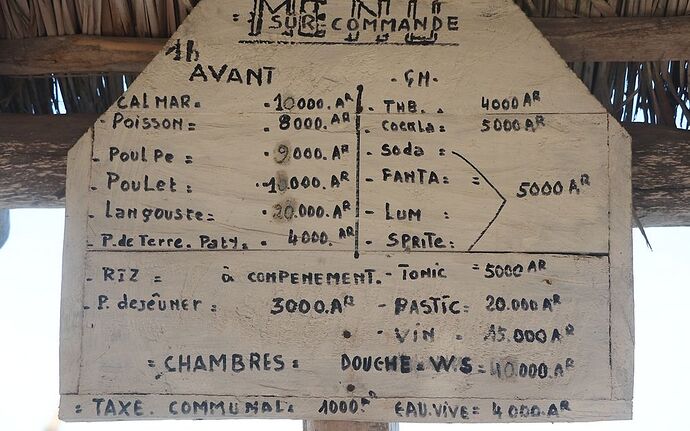 MENU
= SUR COMMANDE
1h
AVANT
- CALMAR = . 10000. AR
- POISSON = . 8000. AR
- POULPE = . 9000. AR
- POULET : . 10.000. AR
- LANGOUSTE = . 20.000. AR
- P. de TERRE. PATY. . 4000. AR
- GH -
- THB. . 4000 AR
- COCALA : 5000 AR
- Soda =
- FANTA : = 5000 AR
- LUM :
- SPRITE :
- RIZ = à COMPENEMENT.
- P. deJEÛNER = 3000. AR
- TONIC = 5000 AR
- PASTIC = 20.000 AR
- VIN = 15.000 AR
= CHAMBRES = DOUCHE = W.S = 40.000 AR
= TAXE. COMMUNAL = 1000 AR EAU.VIVE = 4000. AR